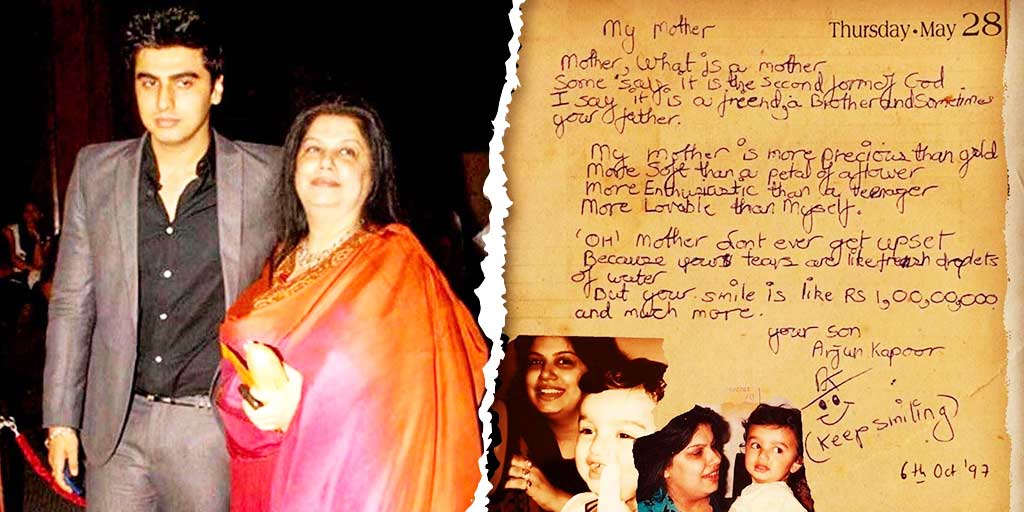 Thursday • May 28
My Mother
Mother, What is a mother
Some say. It is the second form of God.
I say it is a freend, a Brother and Sometimes
your father.
My mother is more precious than gold
More Soft than a petal of a flower
More Enthusiastic than a teenager
More Lovable than Myself.
'OH' Mother don't ever get upset
Because your tears are like fresh droplets
of water
But your smile is like RS 1,00,00,000
and much more.
your son
Arjun Kapoor
(Keep smiling)
6th Oct '97